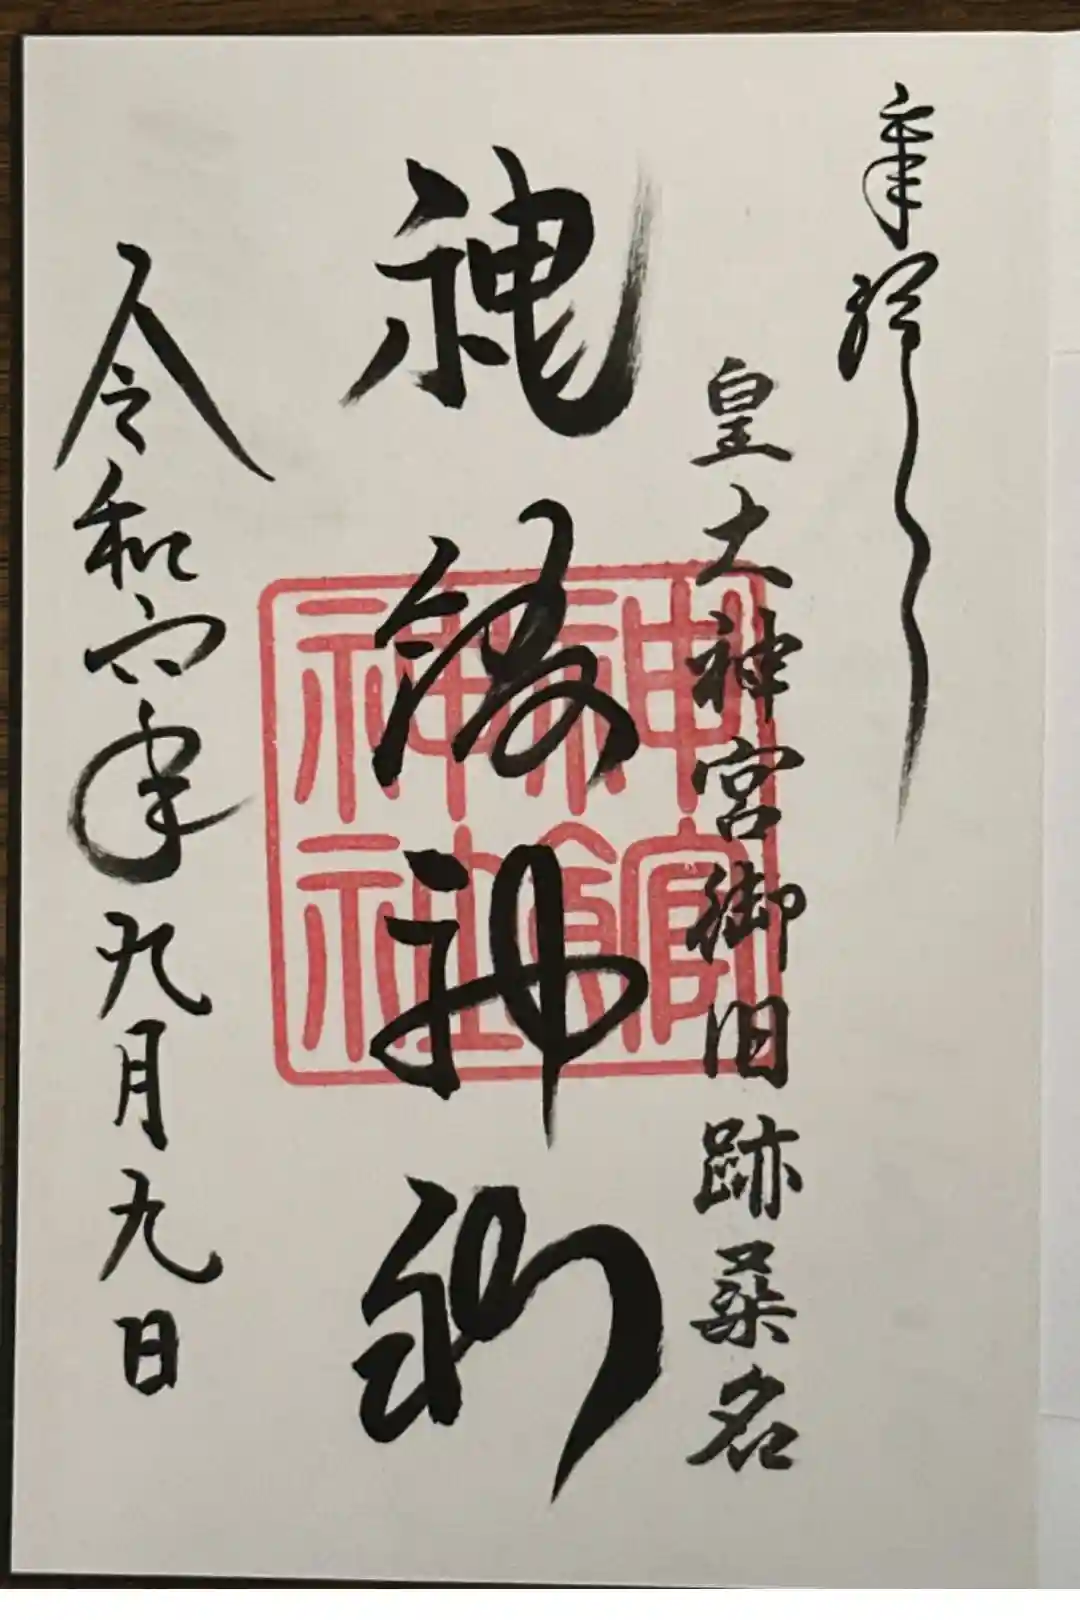 奉拝
皇大神宮御旧跡桑名
神館神社
神館
神社
令和六年九月九日